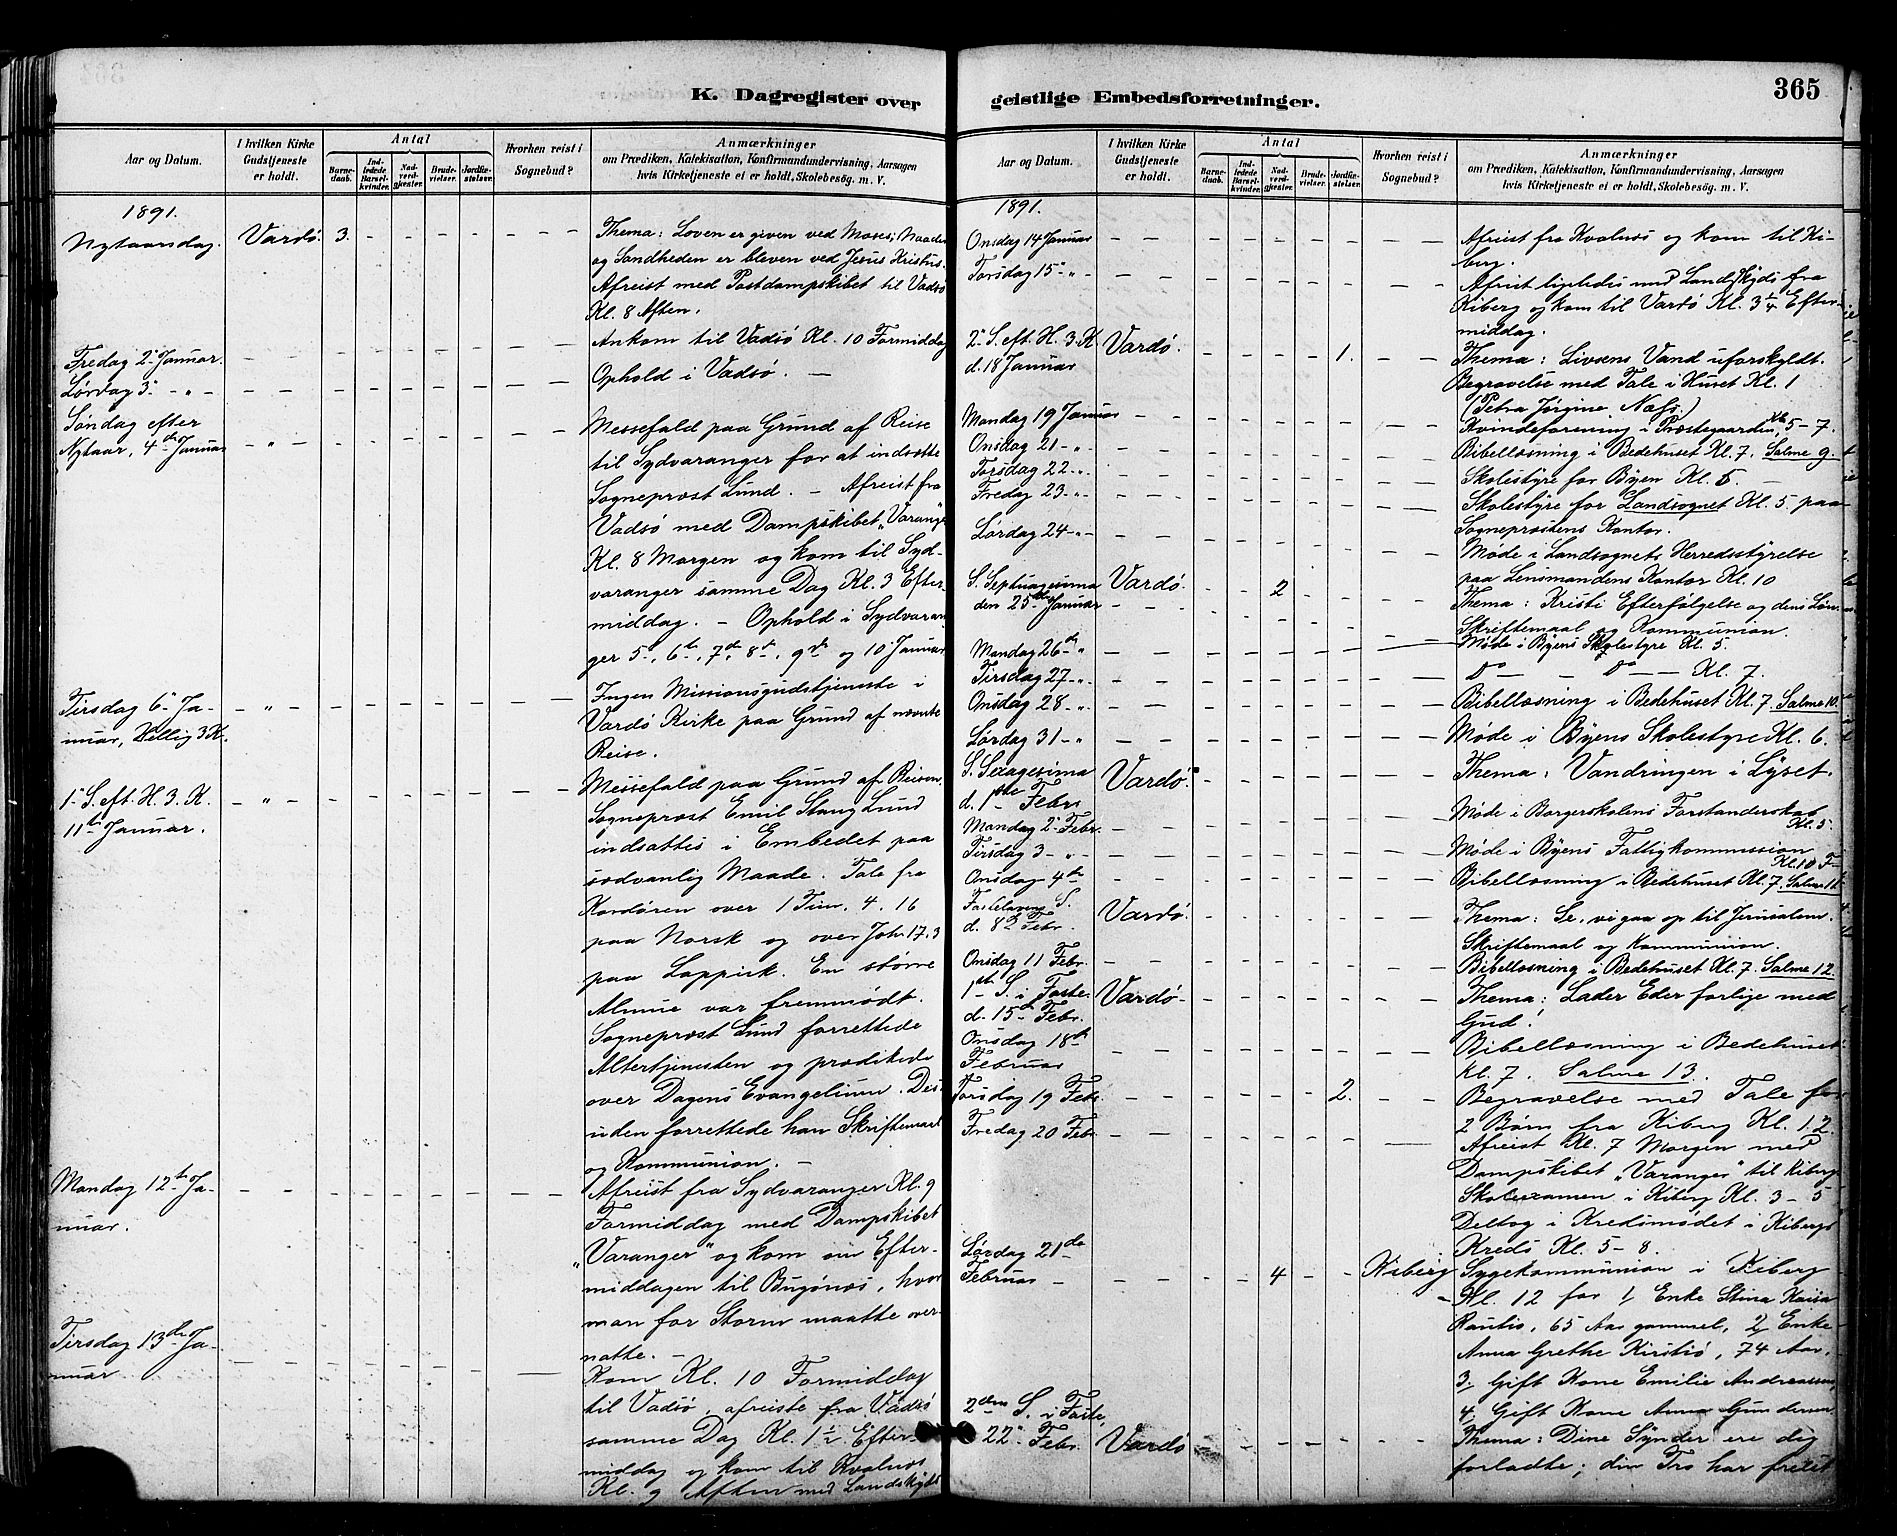 K. Dagregister over
Aar og Datum.
I hvilken Kirke Gudstjeneste er holdt.
Antal
Barnedaab.
Indledede Barselkvinder.
Nadverdgjester.
Brudevielser.
Jordfæstelser.
Hvorhen reist i Sognebud?
Anmærkninger
om Prædiken, Katekisation, Konfirmandundervisning, Aarsagen
hvis Kirketjeneste ei er holdt, Skolebesøg. m. V.
1891.
Nytaarsdag. Vardø. 3. Thema: Loven er given ved Moses, Naaden
og Sandheden er bleven ved Jesus Kristus.
Afreist med Postdampskibet til Vadsø
Kl. 8 Aften.
Fredag 2 Januar. Ankom til Vadsø Kl. 10 Formiddag
Lørdag 3 - " - Ophold i Vadsø. —
Søndag efter
Nytaar, 4de Januar " Messefald paa Grund af Reise
til Sydvaranger for at indsætte
Sogneprest Lund. — Afreist fra
Vadsø med Dampskibet "Varanger"
Kl. 8 Morgen og kom til Syd-
varanger samme Dag Kl. 3 Efter-
middag. — Ophold i Sydvaran-
ger 5, 6te, 7de, 8de, 9de og 10 Januar
Tirsdag 6 Ja- " Ingen Missionsgudstjeneste i
nuar, Hellig 3 K. Vardø Kirke paa Grund af nævnte
Reise.
1 S. eft. H. 3. K. " Messefald paa Grund af Reisen.
11te Januar. Sogneprest Emil Stang Lund
indsattes i Embedet paa
sædvanlig Maade. Tale fra
Kordøren over 1 Tim. 4. 16
paa Norsk og over Joh. 17. 3
paa Lappisk. En større
Almue var fremmødt.
Sogneprest Lund forrettede
Altertjenesten og prædikede
over Dagens Evangelium. Des-
uden forrettede han Skriftemaal
og Kommunion. —
Mandag 12te Ja- Afreist fra Sydvaranger Kl. 9
nuar. Formiddag med Dampskibet
"Varanger" og kom om Efter-
middagen til Bugønæs, hvor
man for Storm maatte over-
natte. —
Tirsdag 13de Ja- Kom Kl. 10 Formiddag
nuar. til Vadsø, afreiste fra Vadsø
samme Dag Kl. 1½ Efter-
middag og kom til Kvalnæs
Kl. 9 Aften med Landskyds
geistlige Embedsforretninger.
365
Aar og Datum.
I hvilken Kirke Gudstjeneste er holdt.
Antal
Barnedaab.
Indledede Barselkvinder.
Nadverdgjester.
Brudevielser.
Jordfæstelser.
Hvorhen reist i Sognebud?
Anmærkninger
om Prædiken, Katekisation, Konfirmandundervisning, Aarsagen
hvis Kirketjeneste ei er holdt, Skolebesøg. m. V.
1891.
Onsdag 14 Januar Afreist fra Kvalnæs og kom til Ki-
berg.
Torsdag 15 - " - Afreist ligeledes med Landskyds fra
Kiberg og kom til Vardø Kl. 3¼ Efter-
middag.
2 S. eft. H. 3. K. Vardø. 1. Thema: Livsens Vand uforskyldt.
d. 18 Januar Begravelse med Tale i Huset Kl. 1
(Petra Jørgine Næss.)
Mandag 19 Januar Kvindeforening i Præstegaarden Kl. 5–7.
Onsdag 21 - " Bibellæsning i Bedehuset Kl. 7. Salme 9.
Torsdag 22 - " Skolestyre for Byen Kl. 5. —
Fredag 23 - " Skolestyre for Landsognet Kl. 5 paa
Sogneprestens Kontor.
Lørdag 24 - " - Møde i Landsognets Herredsstyrelse
paa Lensmandens Kontor Kl. 10
S. Septuagesima Vardø. 2 Thema: Kristi Efterfølgelse og dens Løn
den 25de Januar Skriftemaal og Kommunion.
Mandag 26de " Møde i Byens Skolestyre Kl. 5.
Tirsdag 27 - " Do — Do — Kl. 7.
Onsdag 28 - " Bibellæsning i Bedehuset Kl. 7 Salme 10.
Lørdag 31 - " Møde i Byens Skolestyre Kl. 6.
S. Sexagesima Vardø. Thema: Vandringen i Lyset.
d. 1ste Febr.
Mandag 2 Febr. Møde i Borgerskolens Forstanderskab
Kl. 5.
Tirsdag 3 - " - Møde i Byens Fattigkommission
Kl. 10 F
Onsdag 4de Bibellæsning i Bedehuset Kl. 7. Salme 11
Fastelavns S. Vardø. Thema: Se, vi gaa op til Jerusalem.
d. 8de Febr. Skriftemaal og Kommunion.
Onsdag 11 Febr. Bibellæsning i Bedehuset Kl. 7 Salme 12.
1ste S. i Faste. Vardø Thema: Lader Eder forlige med
d. 15de Febr. Gud!
Onsdag 18de Bibellæsning i Bedehuset
Februar Kl. 7. Salme 13.
Torsdag 19 Febr. 2. Begravelse med Tale for
2 Børn fra Kiberg Kl. 12.
Fredag 20 Febr. Afreist Kl. 7 Morgen med
Dampskibet "Varanger" til Kiberg
Skoleexamen i Kiberg Kl. 3–5
Deltog i Kredsmødet i Kibergs
Kreds Kl. 5–8.
Lørdag 21de Februar 4 Kiberg Sygekommunion i Kiberg
Kl. 12 for 1/ Enke Stina Kaisa
Rautio, 65 Aar gammel, 2/ Enke
Anna Grethe Kirstiø, 74 Aar.
3, Gift Kone Emilie Andreassen,
4, Gift Kone Anna Gundersen
2den S. i Faste,
22 Febr. Vardø Thema: Dine Synder ere dig
forladte; din Tro har frelst